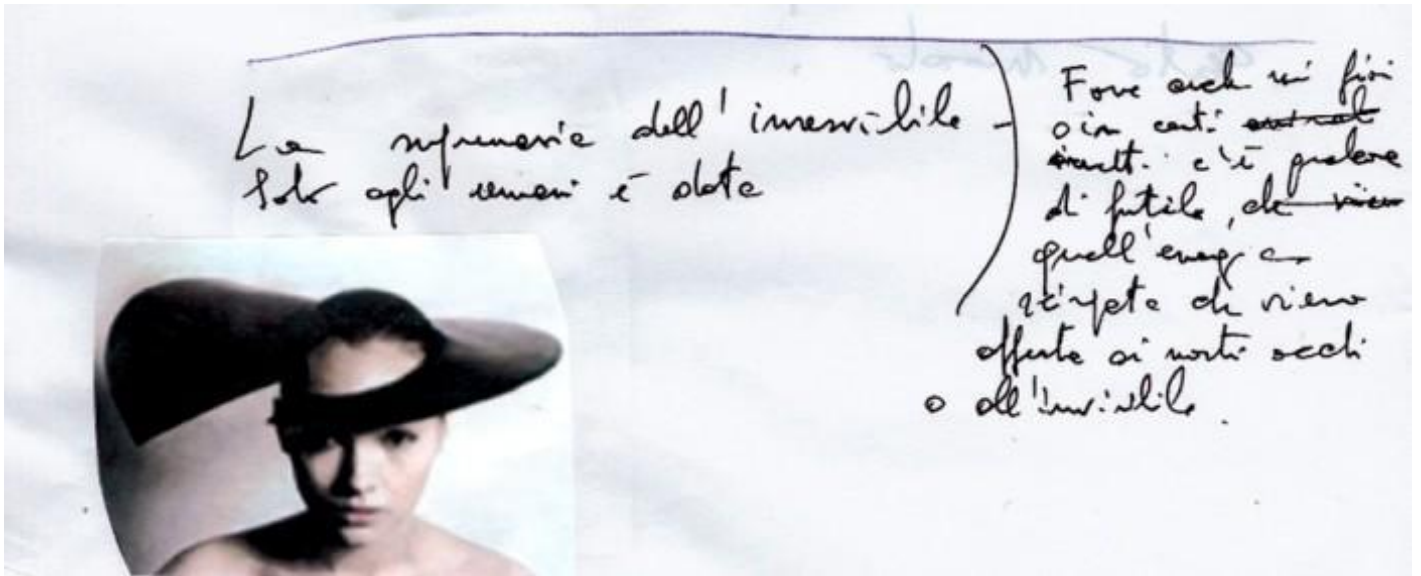 La supremazia dell'invisibile
Solo agli umani è data
Forse anche nei fiori
o in certi
insetti c'è qualcosa
di futile, che
quell'energia
sciupata che viene
offerta ai nostri occhi
o all'invisibile.